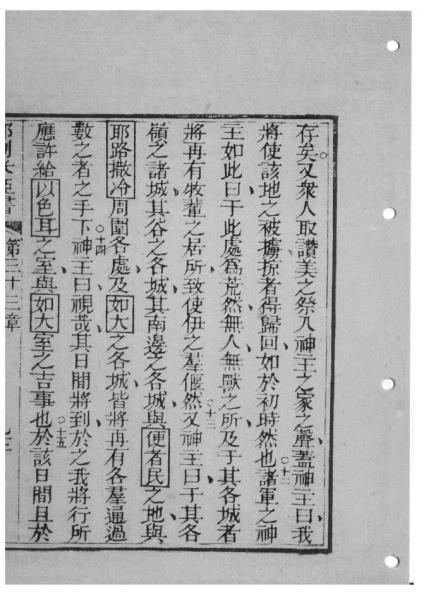 存矣又衆人取讚美之祭入神主之家之聲蓋神主曰我
將使該地之被擄掠者得歸回如於初時然也○十二諸軍之神
王如此曰于此處爲荒然無人無獸之所及于其各城者
將再有牧輩之居所致使伊之羣偃然○十三又神主曰于其各
嶺之諸城其谷之各城其南邊之各城與便者民之地與
耶路撒冷周圍各處及如大之各城皆將再有各羣通過
數之者之手下○十四神主曰視哉其日間將到於之我將行所
應許給以色耳之室與如大室之吉事也○十五於該日間且於
第三十三章